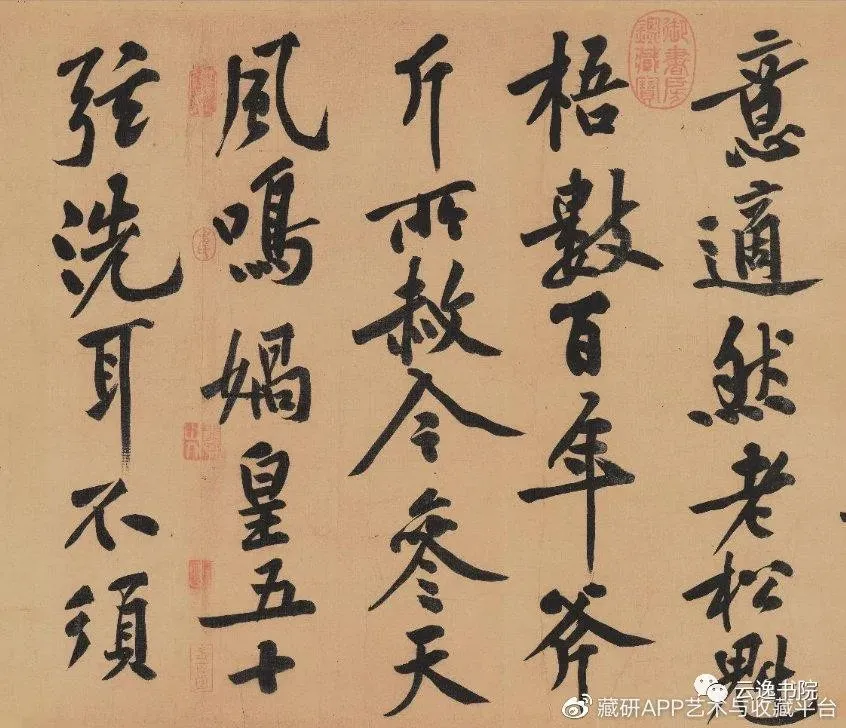 意適然老松魁
梧數百年斧
斤所赦今參天
風鳴媧皇五十
弦洗耳不須
御書房
鑑藏寶
云逸书院
藏研APP艺术与收藏平台